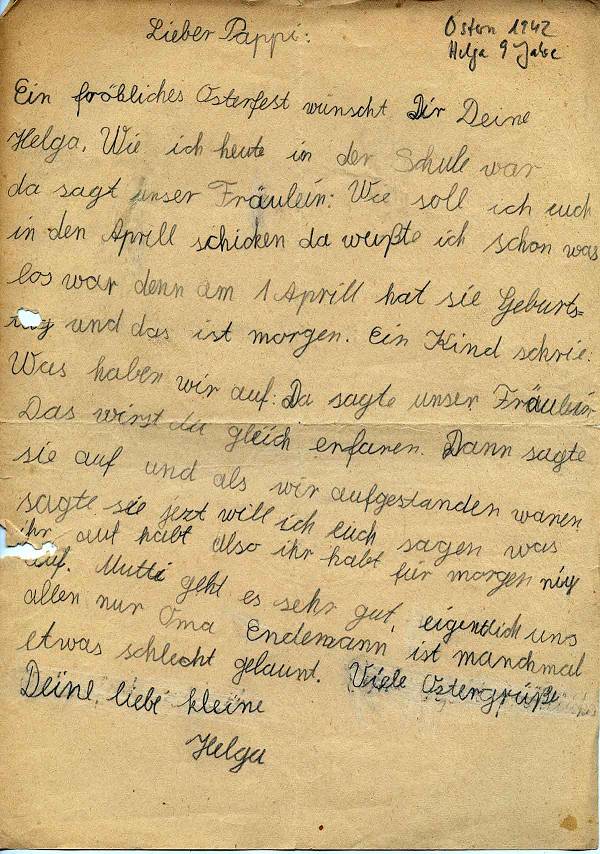 Ostern 1942
Helga 9 Jahre
Lieber Pappi:
Ein fröhliches Osterfest wünscht Dir Deine
Helga. Wie ich heute in der Schule war
da sagt unser Fräulein: Wie soll ich euch
in den Aprill schicken da wußte ich schon was
los war denn am 1 Aprill hat sie Geburts-
tag und das ist morgen. Ein Kind schrie:
Was haben wir auf: Da sagte unser Fräulein
Das wirst du gleich erfaren. Dann sagte
sie auf und als wir aufgestanden waren
sagte sie jezt will ich euch sagen was
ihr auf habt also ihr habt für morgen nix
auf. Mutti geht es sehr gut, eigentlich uns
allen nur Oma Endemann ist manchmal
etwas schlecht gelaunt. Viele Ostergrüße
Deine liebe kleine
Helga